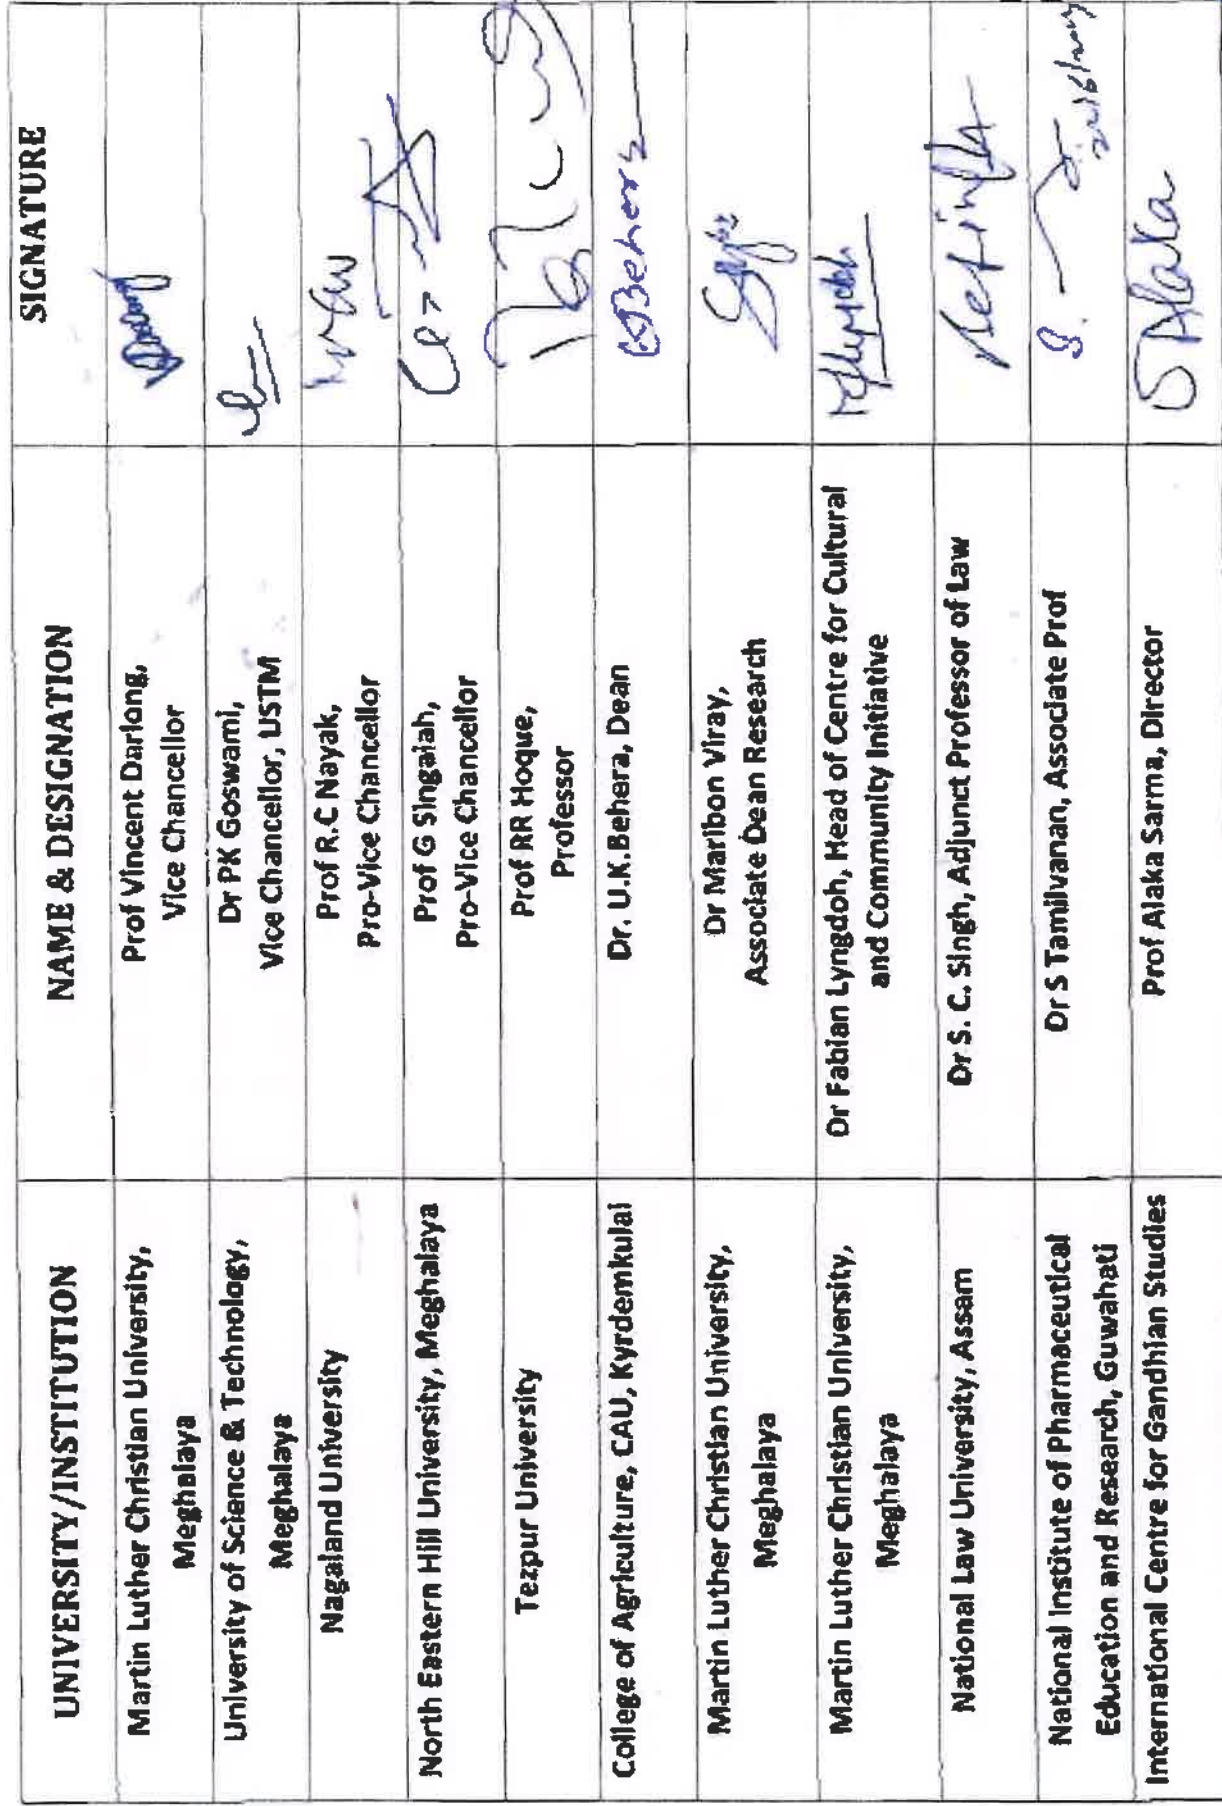 UNIVERSITY/INSTITUTION
NAME & DESIGNATION
SIGNATURE
Martin Luther Christian University,
Meghalaya
Prof Vincent Darlong,
Vice Chancellor
University of Science & Technology,
Meghalaya
Dr PK Goswami,
Vice Chancellor, USTM
Nagaland University
Prof R.C Nayak,
Pro-Vice Chancellor
North Eastern Hill University, Meghalaya
Prof G Singaiah,
Pro-Vice Chancellor
Tezpur University
Prof RR Hoque,
Professor
College of Agriculture, CAU, Kyrdemkulai
Dr. U.K.Behera, Dean
Behera
Martin Luther Christian University,
Meghalaya
Dr Maribon Viray,
Associate Dean Research
Martin Luther Christian University,
Meghalaya
Dr Fabian Lyngdoh, Head of Centre for Cultural
and Community Initiative
National Law University, Assam
Dr S. C. Singh, Adjunct Professor of Law
National Institute of Pharmaceutical
Education and Research, Guwahati
Dr S Tamilvanan, Associate Prof
International Centre for Gandhian Studies
Prof Alaka Sarma, Director
Alaka